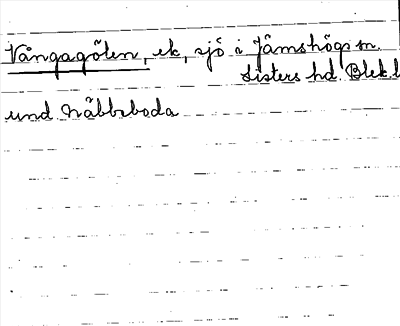 Vångagölen, ek, sjö i Jämshögs sn.
Listers hd. Blek.l
und. Näbbeboda